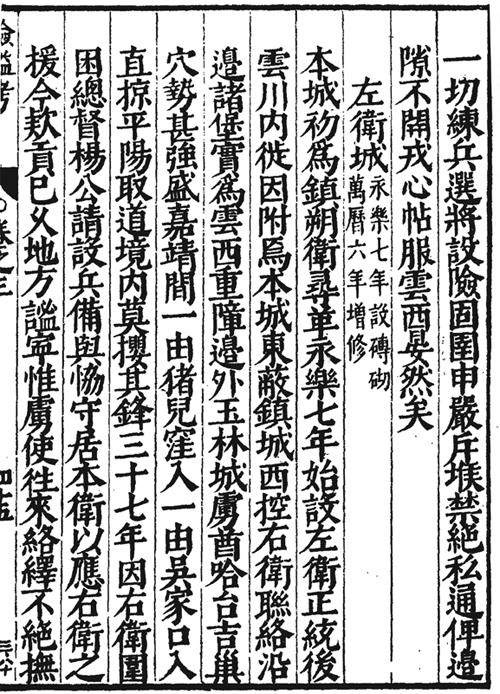 一切練兵選將設險固圉申嚴斥堠禁絶私通俾邉
隙不開戎心帖服雲西晏然矣
左衛城永樂七年設磚砌萬曆六年增修
本城初爲鎮朔衛尋革永樂七年始設左衛正統後
雲川内徙因附焉本城東蔽鎮城西控右衛聯絡沿
邉諸堡實爲雲西重障邉外玉林城虜酋哈台吉巢
穴勢甚強盛嘉靖間一由猪兒窪入一由吳家口入
直掠平陽取道境内莫攖其鋒三十七年因右衛圍
困總督楊公請設兵備與恊守居本衛以應右衛之
援今欵貢已乆地方謐寧惟虜使徃來絡繹不絶撫